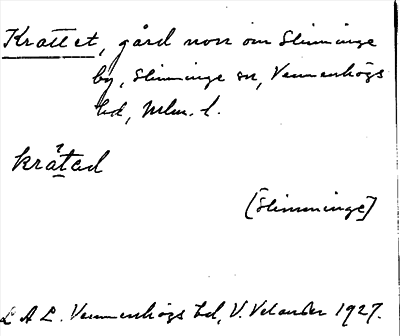 Krattet, gård norr om Slimminge
by, Slimminge sn, Vemmenhögs
hd, Mlm. l.
kråtad
[Slimminge]
L A L. Vemmenhögs hd, V. Velander 1927.